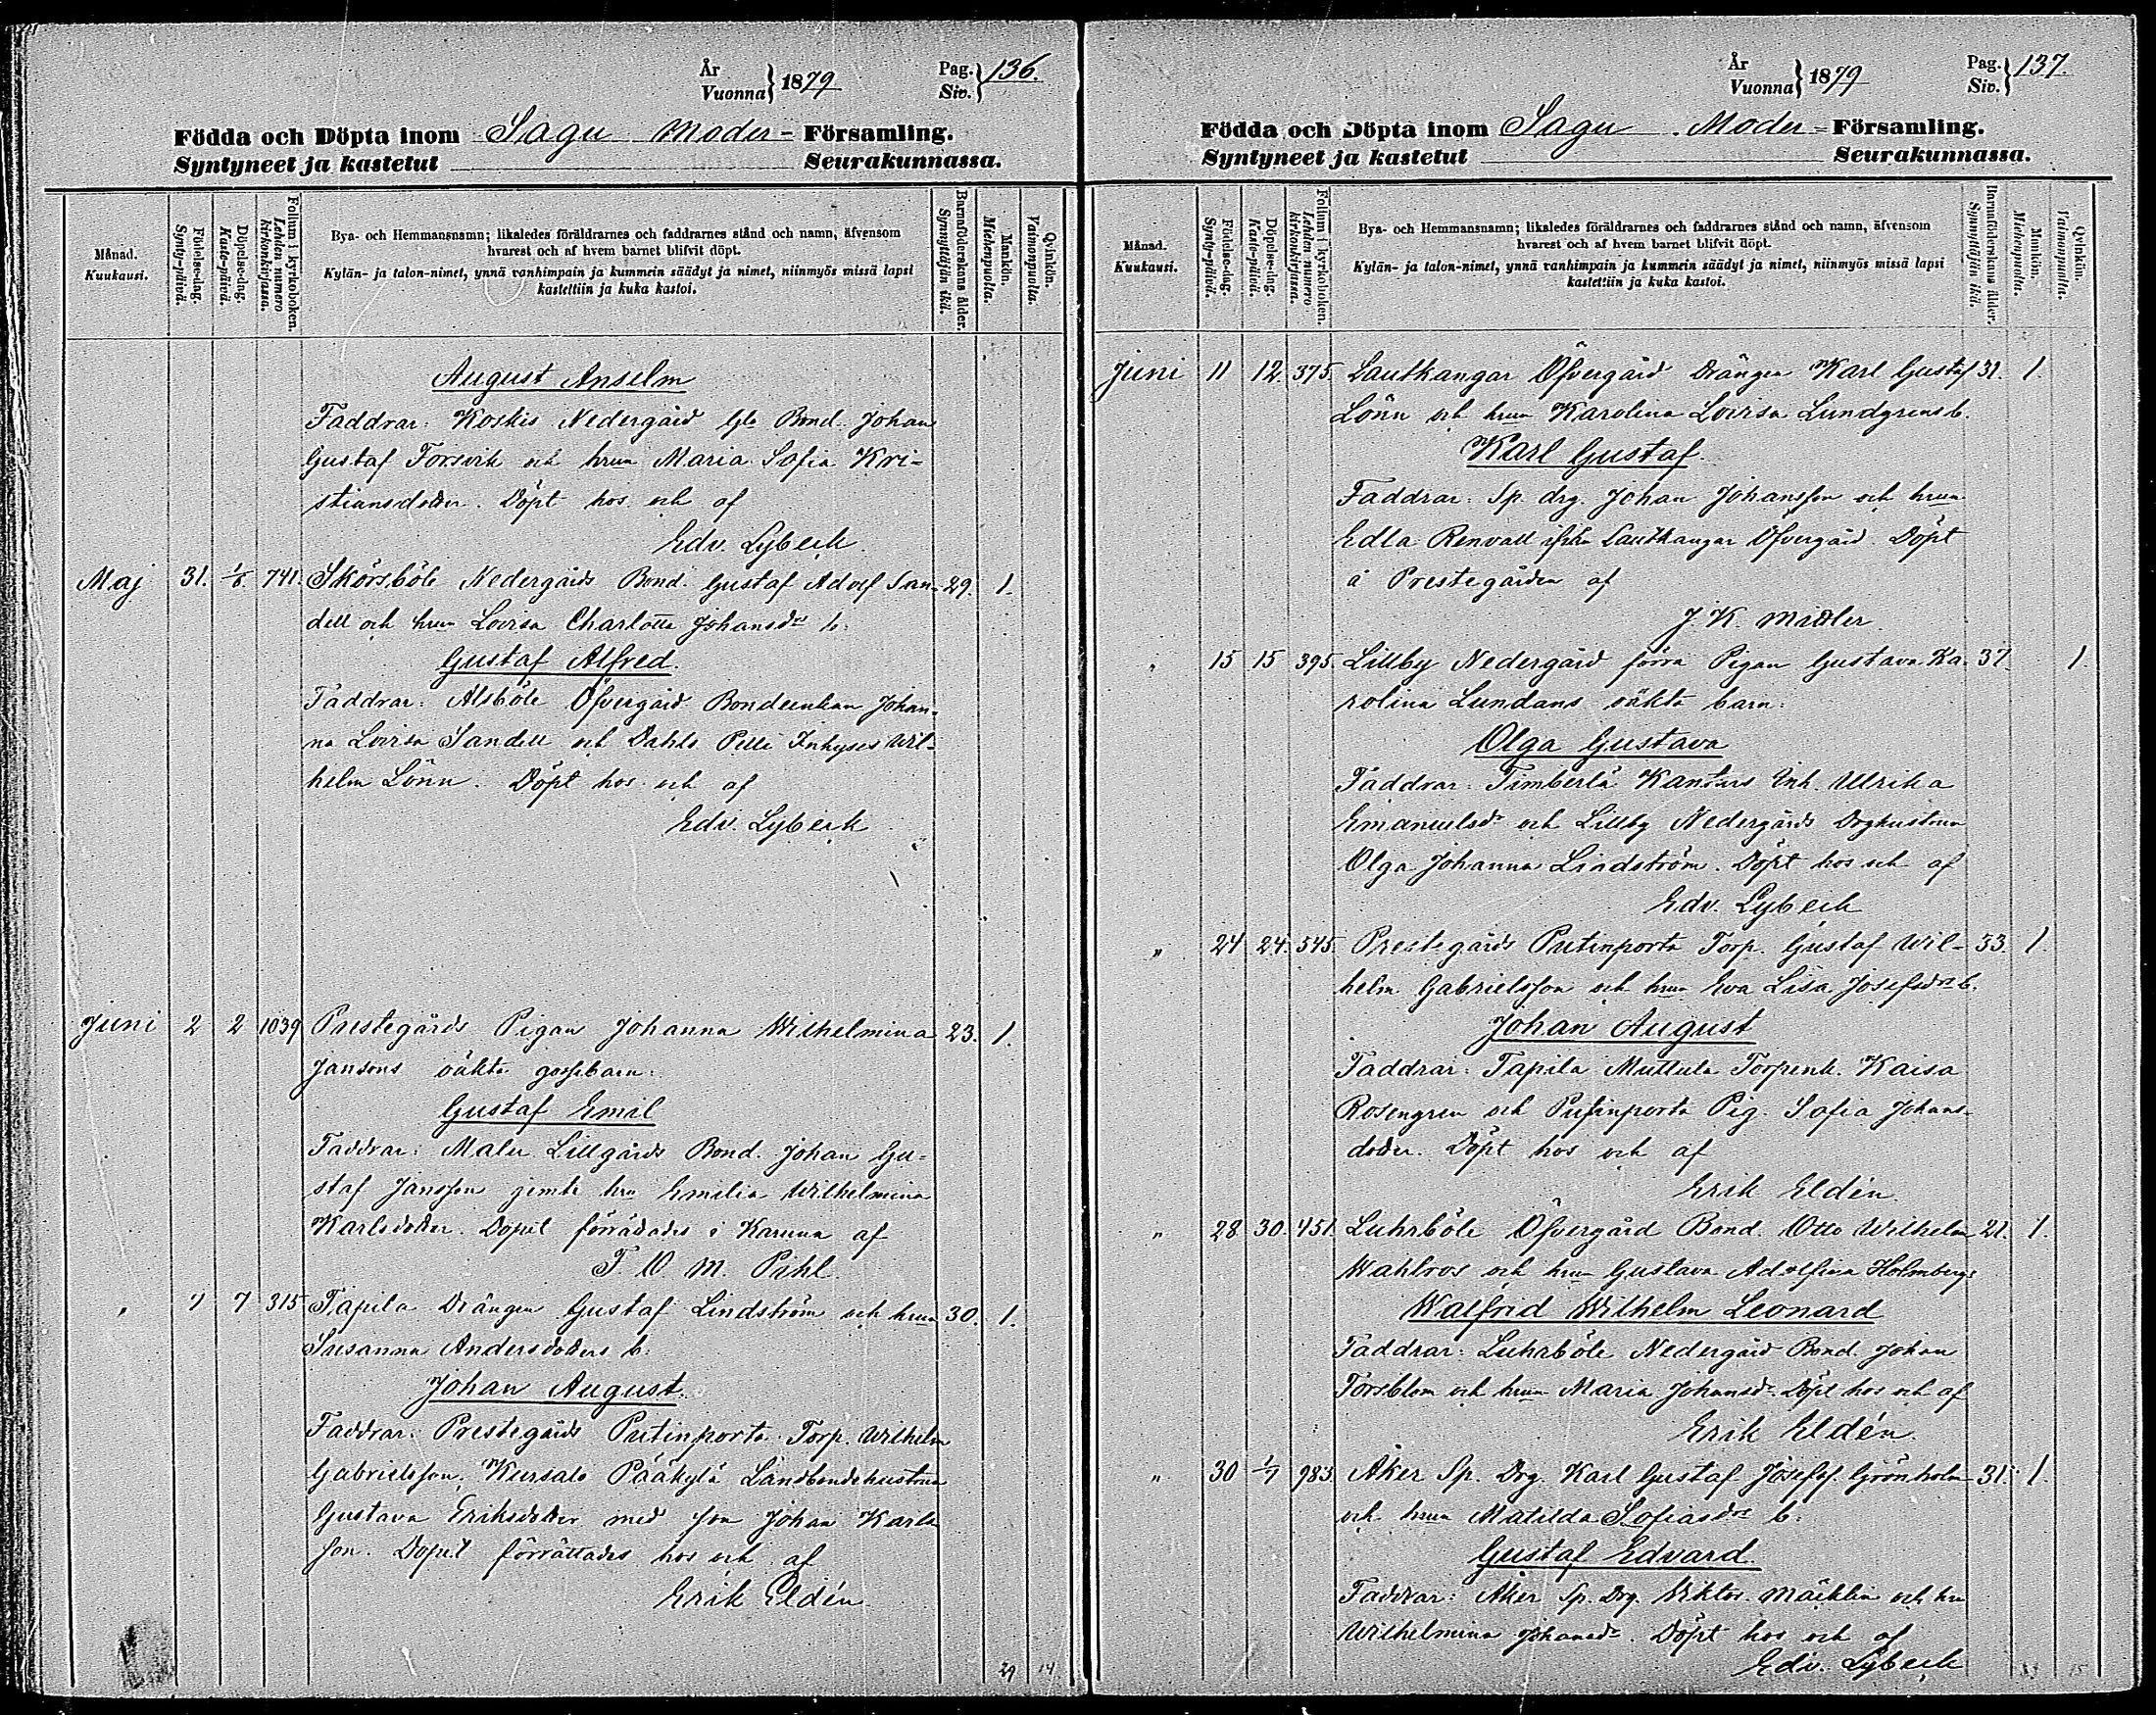 År
Vuonna } 1879
Pag.
Siv. } 136.
Födda och Döpta inom Sagu Moder- Församling.
Syntyneet ja kastetut Seurakunnassa.
Månad.
Kuukausi.
Födelse-dag.
Synty-päivä.
Döpelse-dag.
Kaste-päivä.
Folium i kyrkoboken.
Lehden numero kirkonkirjassa.
Bya- och Hemmansnamn; likaledes föräldrarnes och faddrarnes stånd och namn, äfvensom
hvarest och af hvem barnet blifvit döpt.
Kylän- ja talon-nimet, ynnä vanhimpain ja kummein säädyt ja nimet, niinmyös missä lapsi
kastettiin ja kuka kastoi.
Barnaföderskans ålder.
Synnyttäjän ikä.
Mankön.
Miehenpuolia.
Qvinkön.
Vaimonpuolia.
August Anselm
Faddrar: Koskis Nedergård Gla Bond. Johan
Gustaf Forsvik och hrun Maria Sofia Kri-
stiansdotter. Döpt hos och af
Edv. Lybeck.
Maj 31. 1/6. 741. Skörsböle Nedergårds Bond. Gustaf Adolf San- 29. 1.
dell och hrun Lovisa Charlotta Johansdrs b.
Gustaf Alfred.
Faddrar: Alsböle Öfvergård Bondeenkan Johan-
na Lovisa Sandell och Dahls Pelle Inhyses Wil-
helm Lönn. Döpt hos och af
Edv. Lybeck
Juni 2 2 1039 Prestegårds Pigan Johanna Wilhelmina 23. 1.
Jansons oäkta gossebarn:
Gustaf Emil
Faddrar: Maler Lillgårds Bond. Johan Gu-
staf Jansson jemte hru Emilia Wilhelmina
Karlsdotter. Dopet förrättades i Karuna af
F. O. M. Pihl.
" 7 7 315 Tapila Drängen Gustaf Lindström och hrun 30. 1.
Susanna Andersdotters b:
Johan August.
Faddrar: Prestegårds Putinporta Torp. Wilhelm
Gabrielsson, Kursalo Pääkylä Landbondehustrun
Gustava Eriksdotter med son Johan Karls
son. Dopet förrättades hos och af
Erik Eldén
29 14
År
Vuonna } 1879
Pag.
Siv. } 137.
Födda och Döpta inom Sagu Moder- Församling.
Syntyneet ja kastetut Seurakunnassa.
Månad.
Kuukausi.
Födelse-dag.
Synty-päivä.
Döpelse-dag.
Kaste-päivä.
Folium i kyrkoboken.
Lehden numero kirkonkirjassa.
Bya- och Hemmansnamn; likaledes föräldrarnes och faddrarnes stånd och namn, äfvensom
hvarest och af hvem barnet blifvit döpt.
Kylän- ja talon-nimet, ynnä vanhimpain ja kummein säädyt ja nimet, niinmyös missä lapsi
kastettiin ja kuka kastoi.
Barnaföderskans ålder.
Synnyttäjän ikä.
Mankön.
Miehenpuolia.
Qvinkön.
Vaimonpuolia.
Juni 11 12. 375. Lautkangar Öfvergård Drängen Karl Gustaf 31. 1.
Lönn och hrun Karolina Lovisa Lundgrens b.
Karl Gustaf.
Faddrar: Sp. drg. Johan Johansson och hrun
Edla Renvall ifrån Lautkangar Öfvergård. Döpt
å Prestegården af
J. K.
" 15 15 395. Lillby Nedergård förra Pigan Gustava Ka- 37. 1
rolina Lundans oäkta barn:
Olga Gustava
Faddrar: Timberlä Kantors Enk. Ulrika
Emanuelsdr och Lillby Nedergårds Drghustrun
Olga Johanna Lindström. Döpt hos och af
Edv. Lybeck
" 24 24. 545. Prestegårds Putinporta Torp. Gustaf Wil- 33. 1.
helm Gabrielsson och hrun Eva Lisa Josefsdrs b.
Johan August
Faddrar: Tapila Muttula Torpenk. Kaisa
Rosengren och Putinporta Pig. Sofia Johans-
dotter. Döpt hos och af
Erik Eldén
" 28. 30. 451. Luhrböle Öfvergård Bond. Otto Wilhelm 21. 1.
Wahlros och hrun Gustava Adolfina Holmbergs
Walfrid Wilhelm Leonard
Faddrar: Luhrböle Nedergård Bond. Johan
Forsblom och hrun Maria Johansdr. Döpt hos och af
Erik Eldén
" 30 1/7 983. Åker Sp. Drg. Karl Gustaf Josefss. Grönholm 31. 1.
och hrun Matilda Sofiasdrs b.
Gustaf Edvard.
Faddrar: Åker Sp. Drg. Viktor Mäcklin och hru
Wilhelmina Johansdr. Döpt hos och af
Edv. Lybeck
15